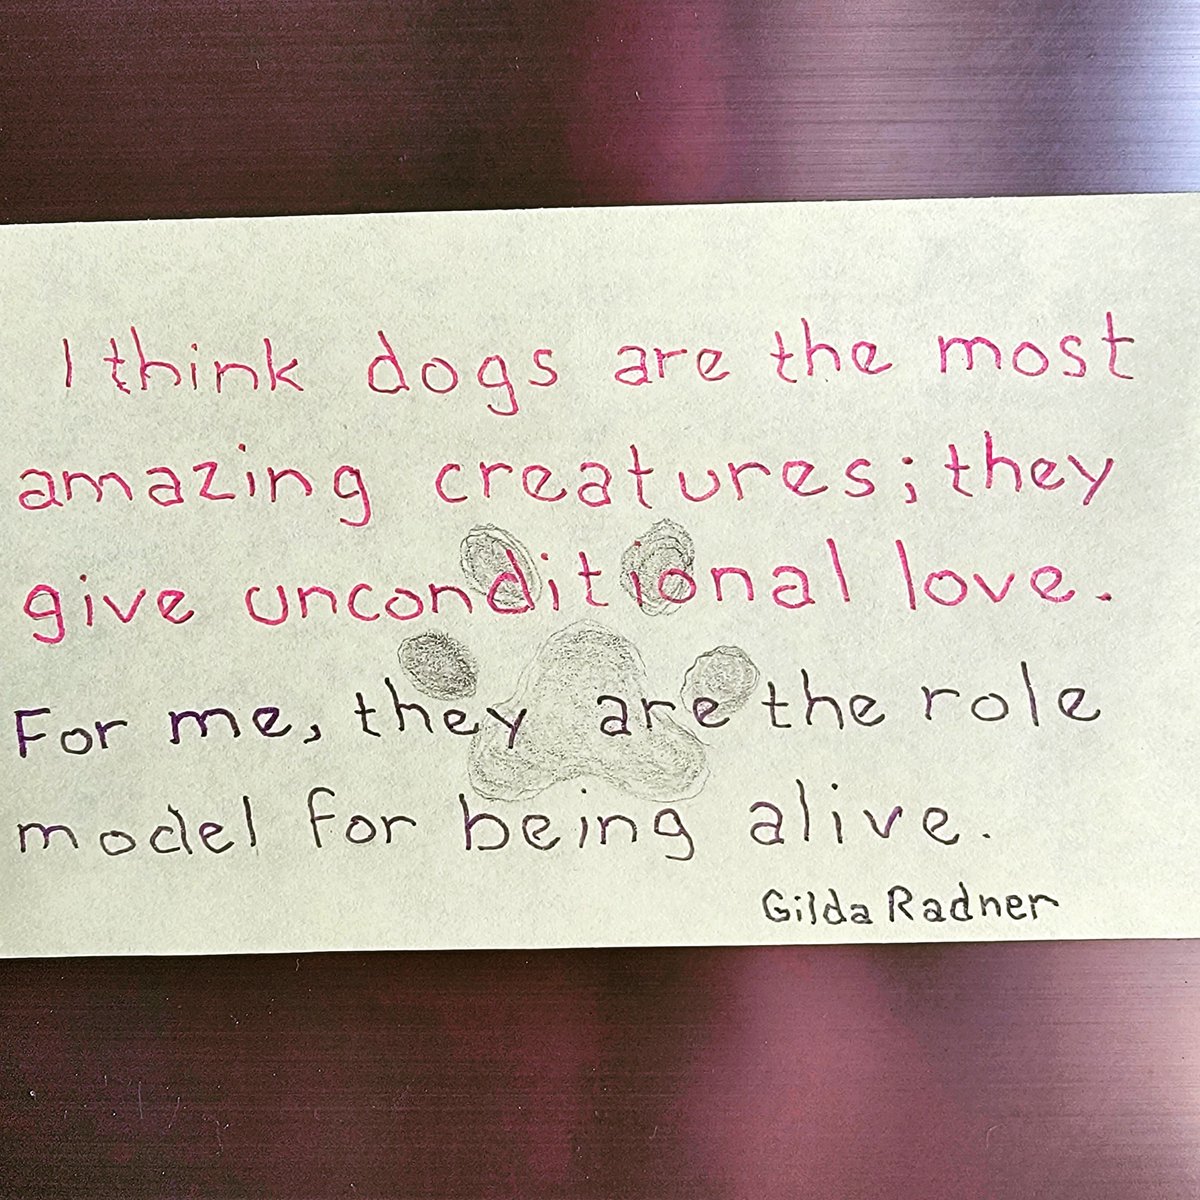 I think dogs are the most
amazing creatures; they
give unconditional love.
For me, they are the role
model for being alive.
Gilda Radner